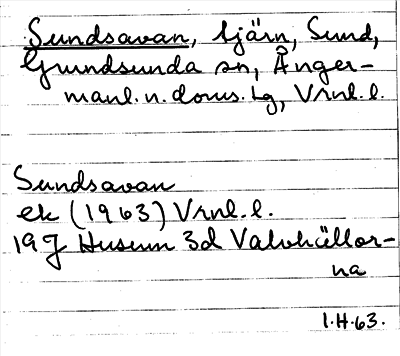 Sundsavan, tjärn, Sund,
Grundsunda sn, Ånger-
manl. n. doms. Lg, Vrnl. l.
Sundsavan
ek (1963) Vrnl. l.
19J Husum 3d Valvhällor-
na
I.H.63.